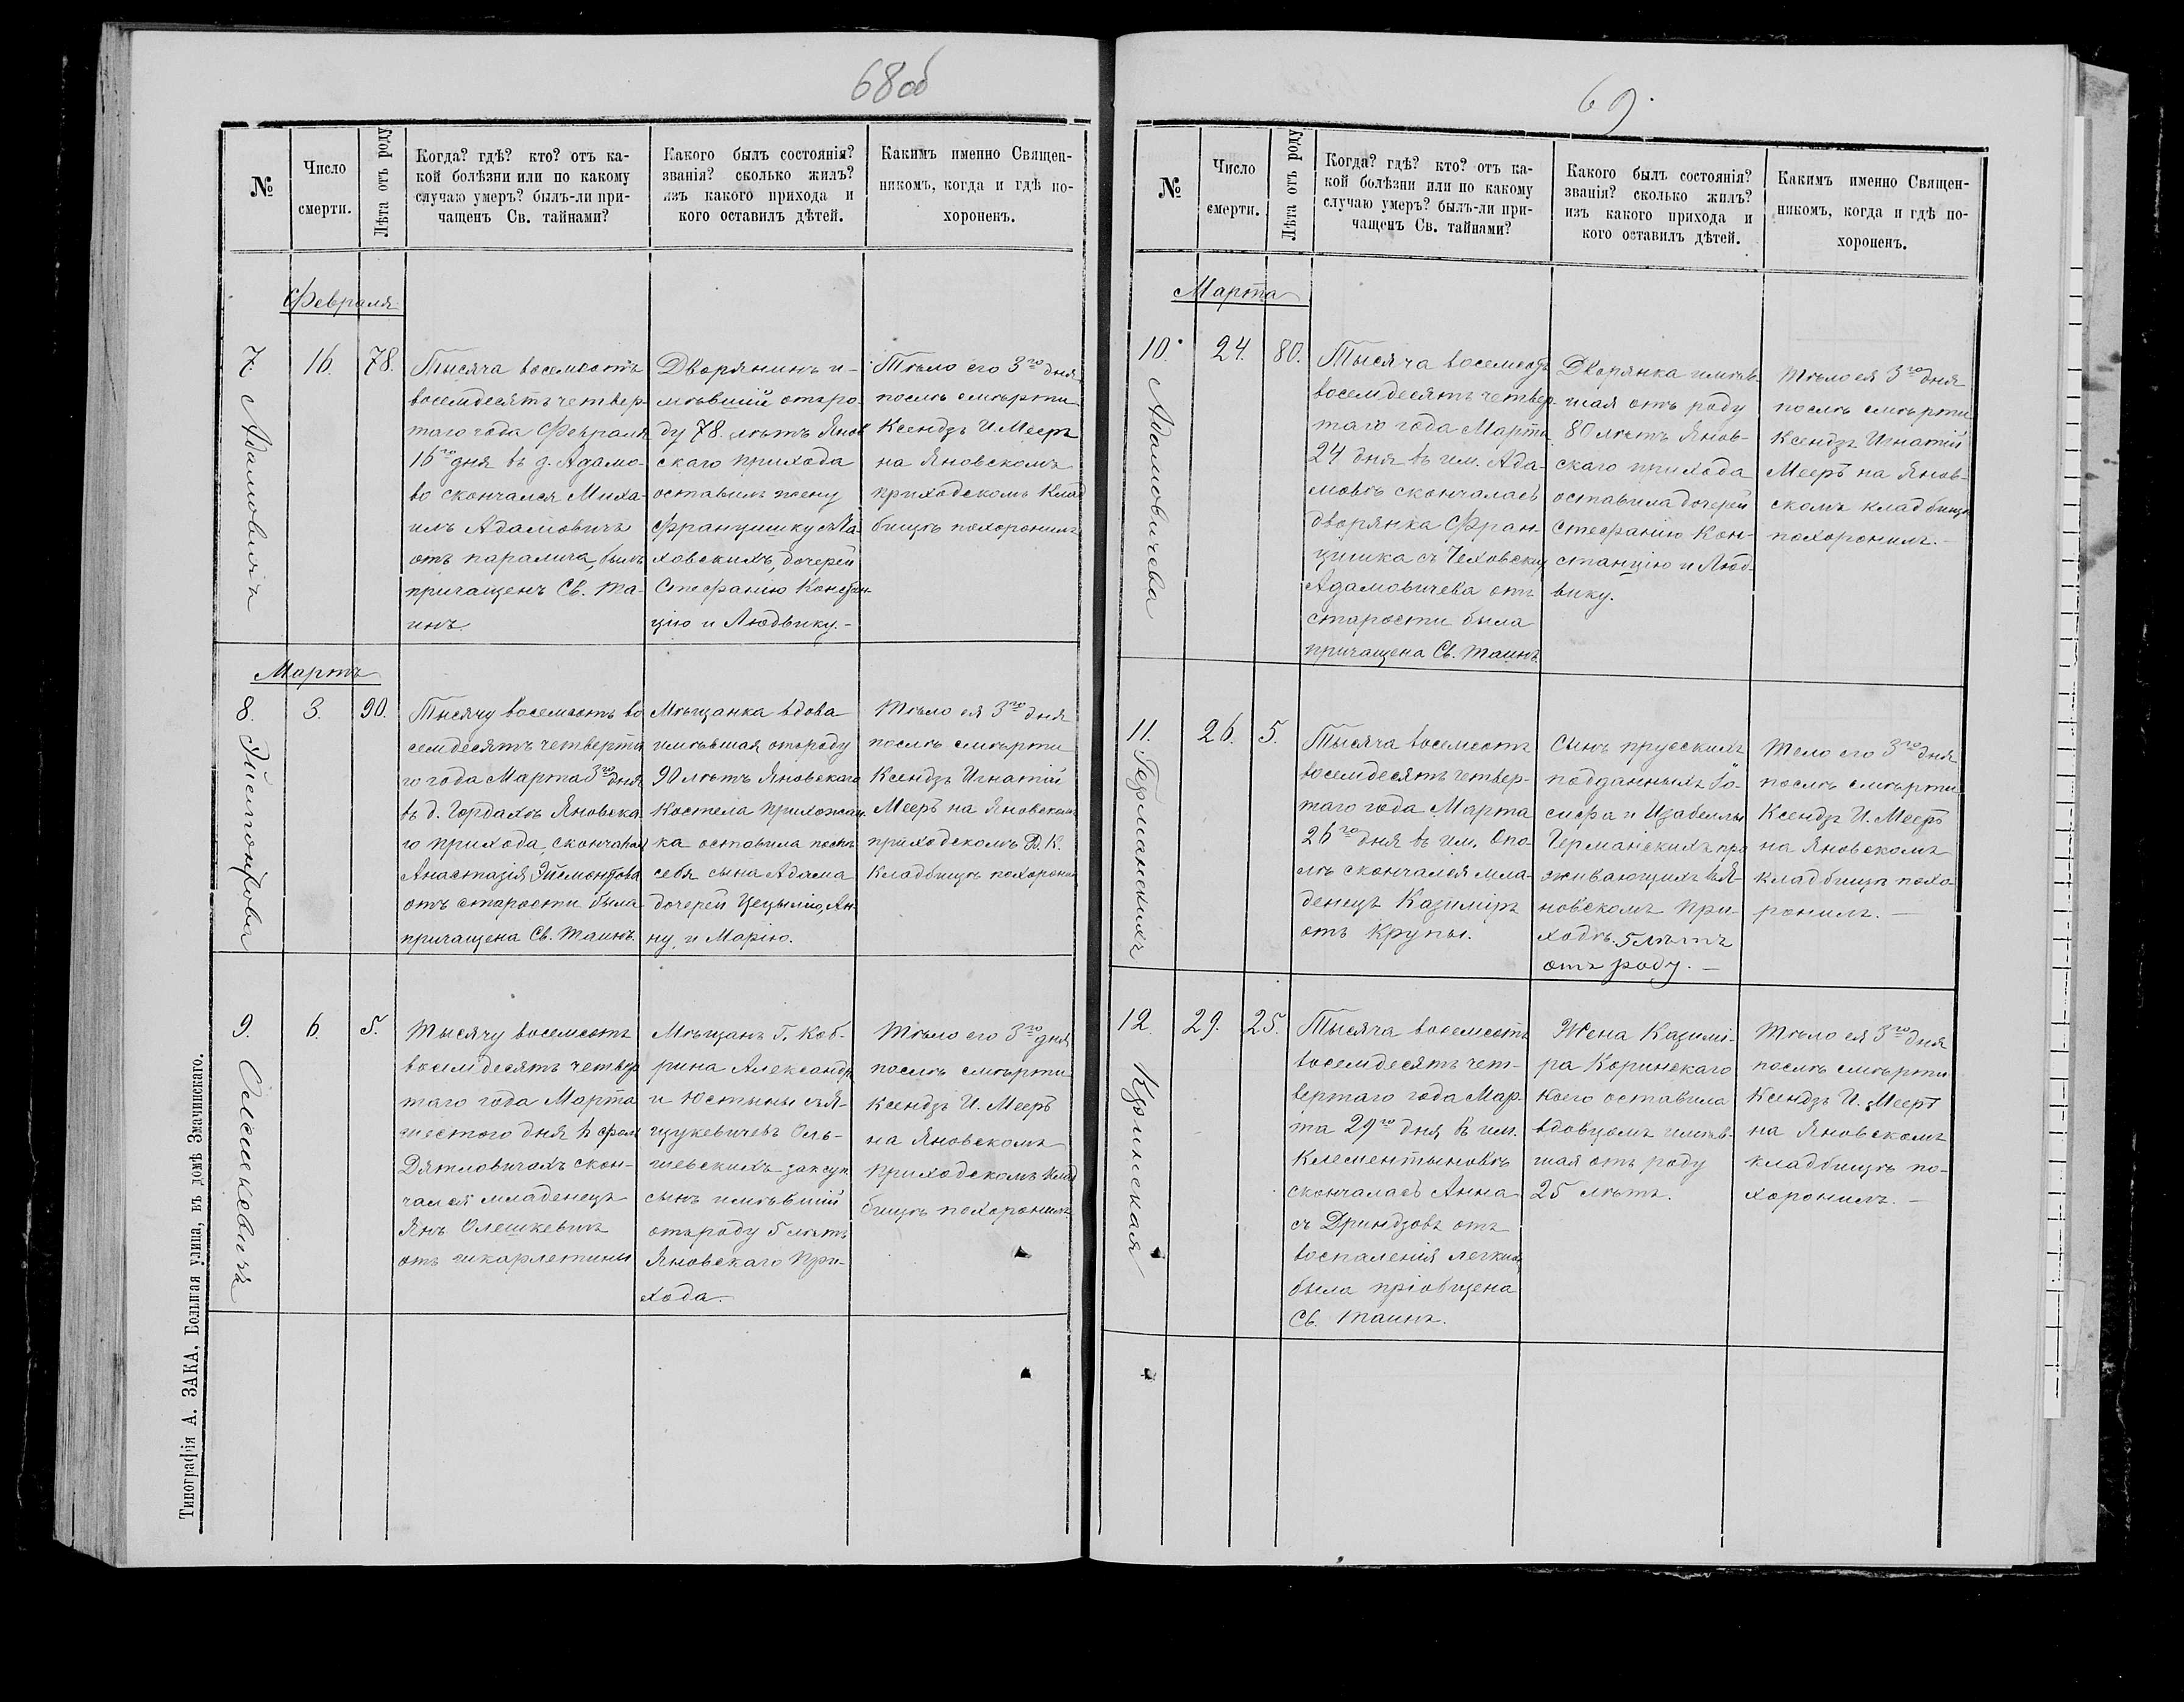 68 об
№
Число
смерти.
Лѣта отъ роду
Когда? гдѣ? кто? отъ ка-
кой болѣзни или по какому
случаю умеръ? былъ-ли при-
чащенъ Св. тайнами?
Какого былъ состоянія?
званія? сколько жилъ?
изъ какого прихода и
кого оставилъ дѣтей.
Какимъ именно Священ-
никомъ, когда и гдѣ по-
хороненъ.
Февраля
7.
Адамовичъ
16.
78.
Тысяча восемьсотъ
восемдесятъ четвер-
таго года Февраля
16го дня въ д. Адамо-
во скончался Миха-
илъ Адамовичъ
отъ паралича, былъ
причащенъ Св. Та-
инъ.
Дворянинъ и-
мѣвшій отъ ро-
ду 78 лѣтъ Янов
скаго прихода
оставилъ жену
Францишку съ
ховскихъ, дочерей
Стефанію Констан-
цію и Людвику.-
Тѣло его 3го дня
послѣ смѣрти
Ксендзъ И. Мееръ
на Яновскомъ
приходскомъ Клад
бищѣ похоронилъ
Мартъ
8.
Эйсмонтова
3.
90.
Тысячу восемсотъ во
семдесятъ четверта
го года Марта 3го дня
въ д. Гордахъ Яновска
го прихода, скончалась
Анастазія Эйсмонтова
отъ старости была
причащена Св. Таинъ.
Мѣщанка вдова
имѣвшая отъ роду
90 лѣтъ Яновскаго
Костела прихожан
ка оставила послѣ
себя сына Адама
дочерей Цецылію, Ан-
ну, и Марію.
Тѣло ея 3го дня
послѣ смѣрти
Ксендзъ Игнатій
Мееръ на Яновскомъ
приходскомъ Р. К.
Кладбищѣ похоронил
9.
Олешкевичъ
6.
5.
Тысячу восемсотъ
восемдесятъ четвер
таго года Марта
шестого дня въ
Дятловичахъ скон-
чался младенецъ
Янъ Олешкевичъ
отъ шкарлетины
Мѣщанъ Г. Коб-
рина Александра
и Юстыны съ Я-
цукевичевъ Оль-
шевскихъ
сынъ имѣвшій
отъ роду 5 лѣтъ
Яновскаго При-
хода.
Тѣло его 3го дня
послѣ смѣрти
Ксендзъ И. Мееръ
на Яновскомъ
Приходскомъ Клад
бищѣ похоронилъ.
Типографія А. ЗАКА, Большая улица, въ домѣ Значинскаго.
69.
№
Число
смерти.
Лѣта отъ роду
Когда? гдѣ? кто? отъ ка-
кой болѣзни или по какому
случаю умеръ? былъ-ли при-
чащенъ Св. тайнами?
Какого былъ состоянія?
званія? сколько жилъ?
изъ какого прихода и
кого оставилъ дѣтей.
Какимъ именно Священ-
никомъ, когда и гдѣ по-
хороненъ.
Марта
10.
Адамовичева
24.
80.
Тысяча восемсотъ
восемдесятъ четвер-
таго года Марта
24 дня въ им. Ада-
мовѣ скончалась
дворянка Фран-
цишка съ Чеховских
Адамовичева отъ
старости была
причащена Св. Таинъ.
Дворянка имѣв-
шая отъ роду
80 лѣтъ Янов-
скаго прихода
оставила дочерей
Стефанію Кон-
станцію и Люд-
вику.
Тѣло ея 3го дня
послѣ смѣрти
Ксендзъ Игнатій
Мееръ на Янов-
скомъ кладбищѣ
похоронилъ.-
11.
Германскихъ
26.
5.
Тысяча восемсотъ
восемдесятъ четвер-
таго года Марта
26го дня въ им. Опо-
лѣ скончался мла-
денецъ Казиміръ
отъ Крупы.
Сынъ прусскихъ
подданныхъ Іо-
сифа и Изабеллы
Германскихъ про
живающихъ въ Я-
новскомъ При-
ходѣ. 5 лѣтъ
отъ роду.-
Тело его 3го дня
послѣ смѣрти
Ксендзъ И. Мееръ
на Яновскомъ
кладбищѣ похо-
ронилъ.-
12.
Коринская
29.
25.
Тысяча восемсотъ
восемдесятъ чет-
вертаго года Мар-
та 29го дня въ им.
Клементыновѣ
скончалась Анна
съ Дриндзовъ отъ
воспаленія легкихъ,
была пріобщена
Св. Таинъ.
Жена Казимі-
ра Коринскаго
коего оставила
вдовцомъ имѣв-
шая отъ роду
25 лѣтъ.
Тѣло ея 3го дня
послѣ смѣрти
Ксендзъ И. Мееръ
на Яновскомъ
кладбищѣ по-
хоронилъ.-